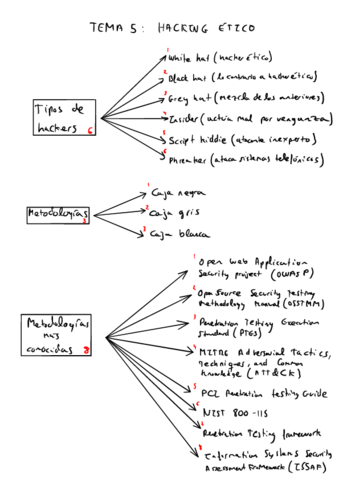 TEMA 5: HACKING ÉTICO
Tipos de
hackers 6
1 White hat (hacker ético)
2 Black hat (lo contrario a hacker ético)
3 Grey hat (mezcla de los anteriores)
4 Insider (actúa mal por venganza)
5 Script kiddie (atacante inexperto)
6 Phreaker (ataca sistemas telefónicos)
Metodologías 3
1 Caja negra
2 Caja gris
3 Caja blanca
Metodologías
más
conocidas 8
1 Open Web Application
Security project (OWASP)
2 Open Source Security Testing
Methodology Manual (OSSTMM)
3 Penetration Testing Execution
Standard (PTES)
4 MITRE Adversarial Tactics,
Techniques, and Common
Knowledge (ATT&CK)
5 PCI Penetration testing Guide
6 NIST 800-115
Penetration Testing framework
8 Information Systems Security
Assessment Framework (ISSAF)